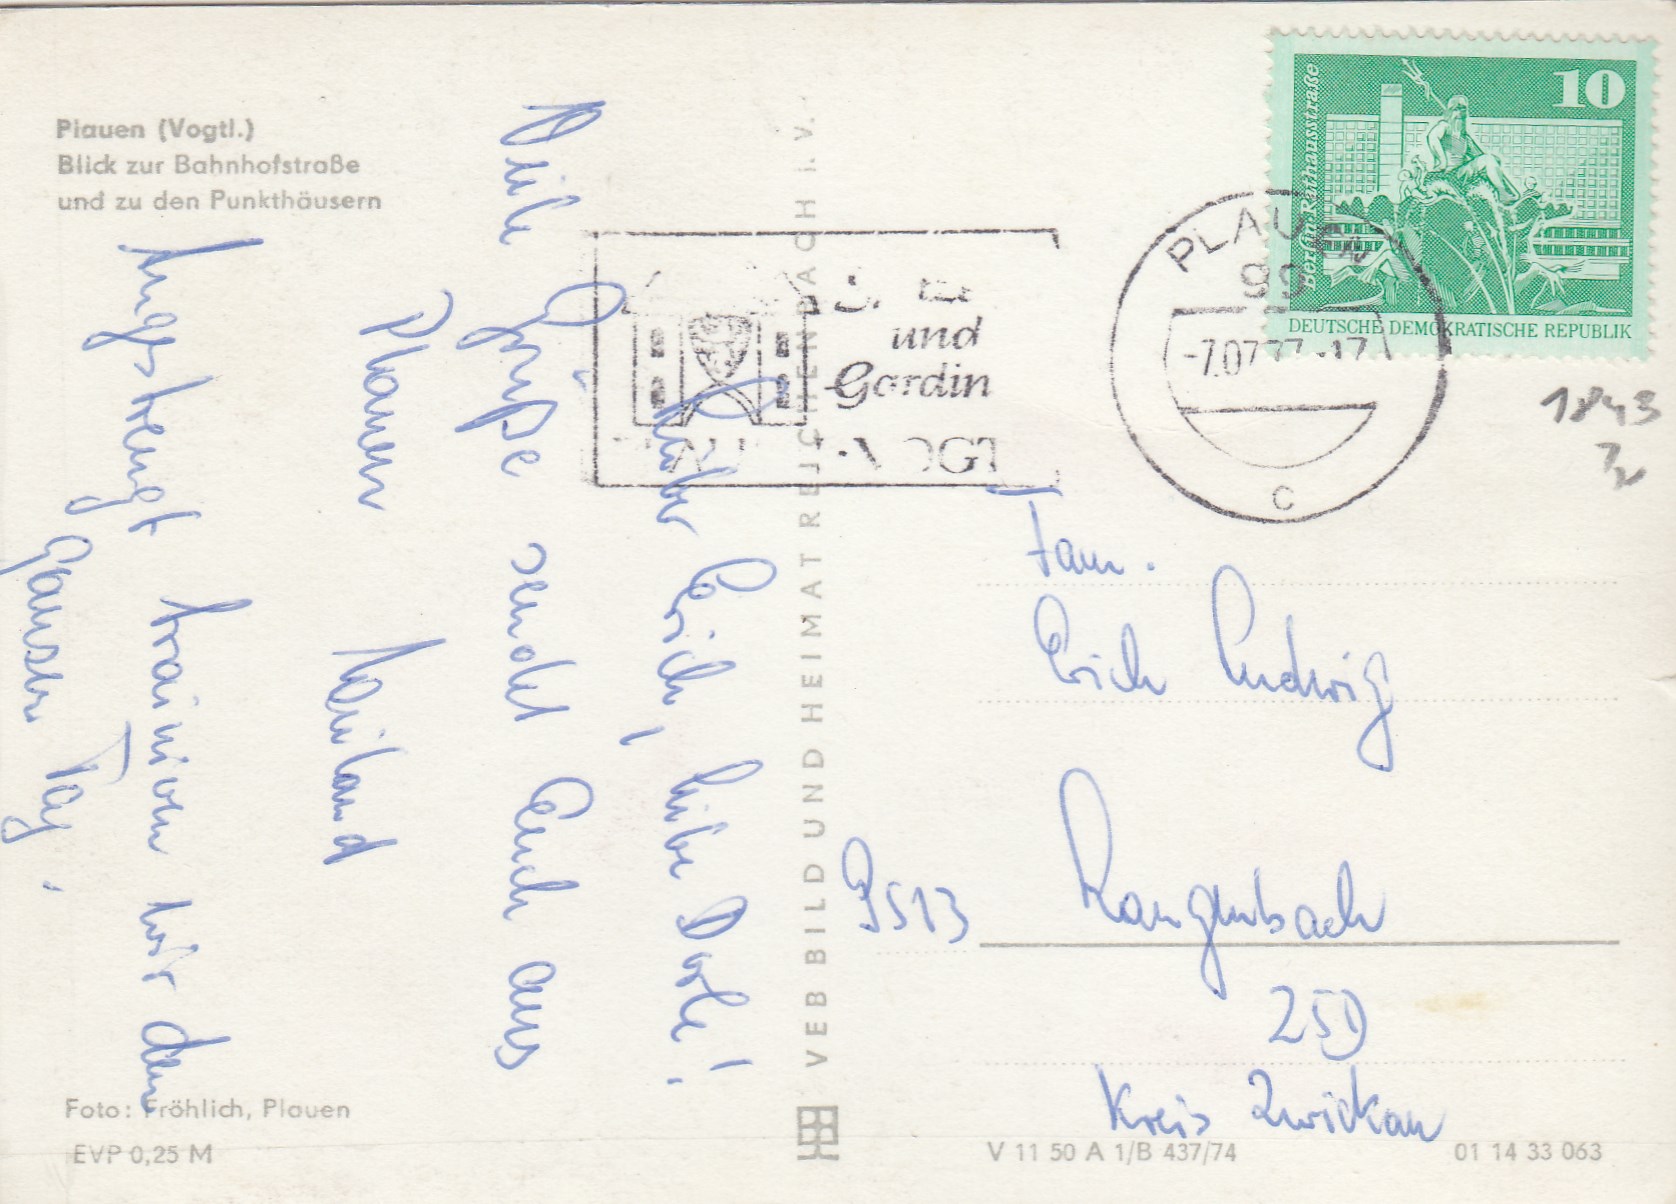 Plauen (Vogtl.)
Blick zur Bahnhofstraße
und zu den Punkthäusern
Lieber Erich, liebe Dorle!
Viele Grüße sendet Euch aus
Plauen Wieland
Angestrengt trainieren wir den
ganzen Tag.
Foto: Fröhlich, Plauen
EVP 0,25 M
VEB BILD UND HEIMAT REICHENBACH i. V.
und
Gardin
PLAUEN
99
-7.07.77-17
C
10
Berlin, Rathausstraße
DEUTSCHE DEMOKRATISCHE REPUBLIK
1843
Fam.
Erich Ludwig
9513 Langenbach
25D
Kreis Zwickau
V 11 50 A 1/B 437/74
01 14 33 063